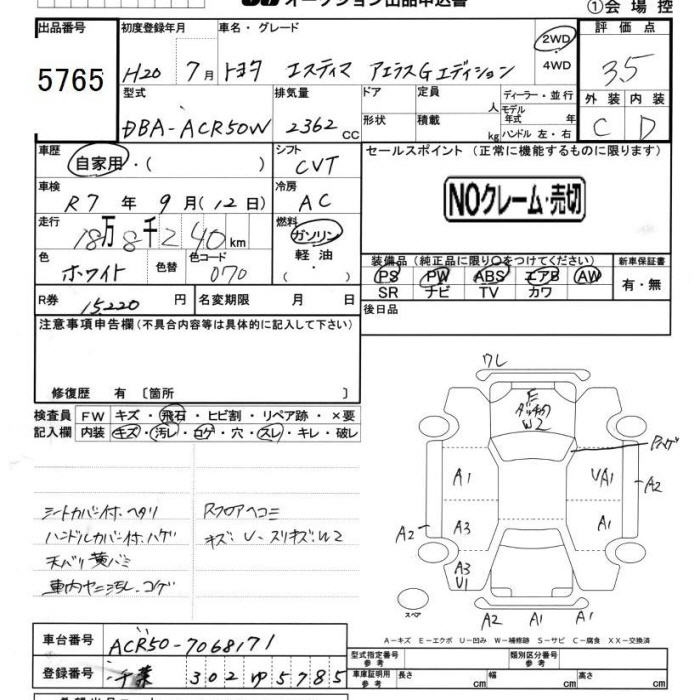 オークション出品申込書
①会場控
出品番号
5765
初度登録年月
H20 7月
車名・グレード
トヨタ エスティマ アエラスGエディション
2WD
4WD
評価点
3.5
外装 内装
C D
型式
DBA-ACR50W
排気量
2362cc
ドア
形状
定員
人
積載
kg
ディーラー・並行
モデル
年式 年
ハンドル 左・右
車歴
自家用・( )
シフト
CVT
セールスポイント (正常に機能するものに限ります)
NOクレーム・売切
車検
R7年 9月(12日)
冷房
AC
走行
18万8千240km
燃料
ガソリン
軽油
( )
色
ホワイト
色替
色コード
070
装備品(純正品に限り○をつけてください)
PS PW ABS エアB AW
SR ナビ TV カワ
新車保証書
有・無
R券 15220円
名変期限 月 日
後日品
注意事項申告欄(不具合内容等は具体的に記入して下さい)
修復歴 有 〔箇所
検査員 FW キズ・飛石・ヒビ割・リペア跡・×要
記入欄 内装 キズ・汚レ・コゲ・穴・スレ・キレ・破レ
シートカバー付、ヘタリ
ハンドルカバー付、ハゲ
天バリ黄バミ
車内ヤニ汚レ、コゲ
Rフロアヘコミ
キズ・U・スリキズ・W2
ワレ
W2
A1
UA1
A2
A2
A3
A1
A3
U1
A2 A1 A1
スペア
A-キズ E-エクボ U-凹み W-補修跡 S-サビ C-腐食 XX-交換済
車台番号
ACR50-7068171
登録番号
千葉 302 ゆ 5785
型式指定番号
参考
類別区分番号
参考
車庫証明用
参考
長さ cm
幅 cm
高さ cm